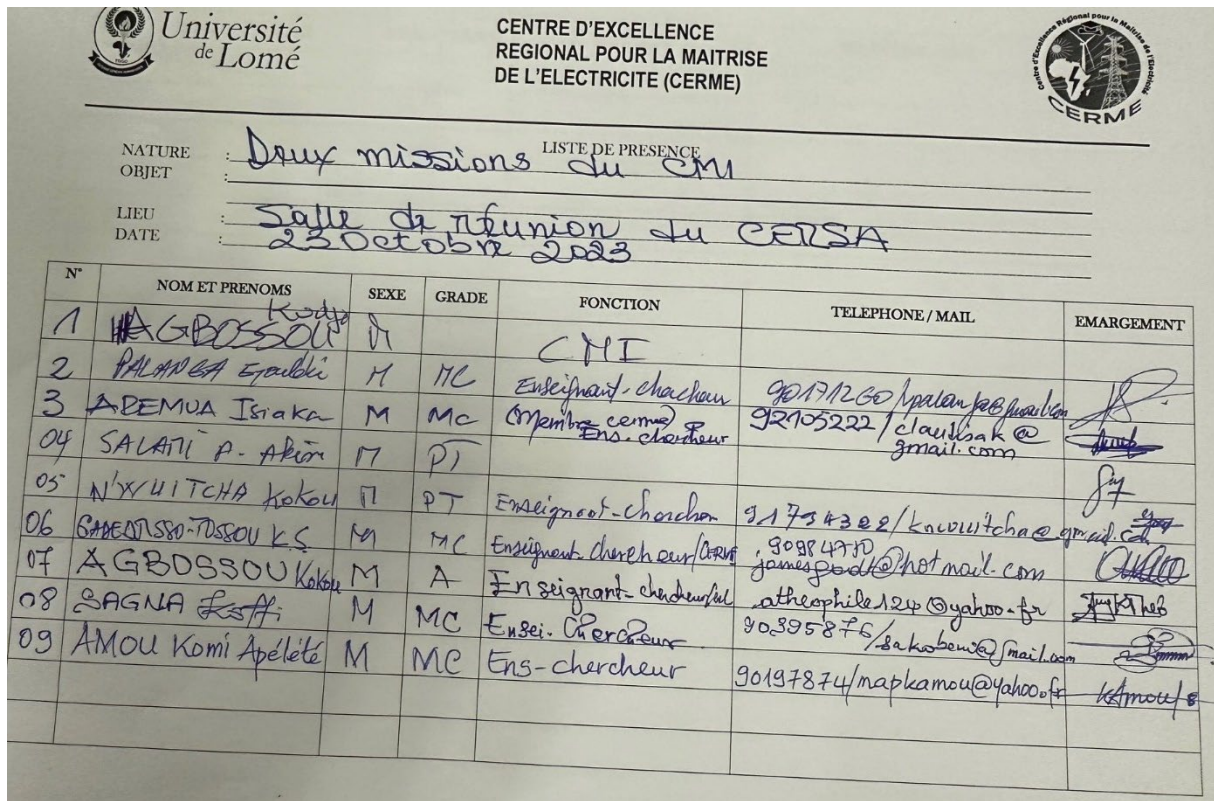 Université
de Lomé
CENTRE D'EXCELLENCE
REGIONAL POUR LA MAITRISE
DE L'ELECTRICITE (CERME)
Centre d'Excellence Régional pour la Maîtrise de l'Electricité
CERME
LISTE DE PRESENCE
NATURE : Deux missions du CMI
OBJET :
LIEU : Salle de réunion du CERSA
DATE : 23 Octobre 2023
N° NOM ET PRENOMS SEXE GRADE FONCTION TELEPHONE / MAIL EMARGEMENT
1 AGBOSSOU Kodjo M CMI
2 PALANGA M MC Enseignant-chercheur
3 ADEMUA Isiaka M MC (Membre cerme) Ens. chercheur 92105222/claudisak@gmail.com
04 SALAMI A. Akim M PT
05 N'WUITCHA Kokou M PT Enseignant-chercheur
06 K.S M MC Enseignant chercheur/CERME
07 AGBOSSOU Kokou M A Enseignant-chercheur atheophile124@yahoo.fr
08 SAGNA Koffi M MC Ensei. Chercheur 90395876/
09 AMOU Komi Apélété M MC Ens-chercheur 90197874/mapkamou@yahoo.fr KAmou